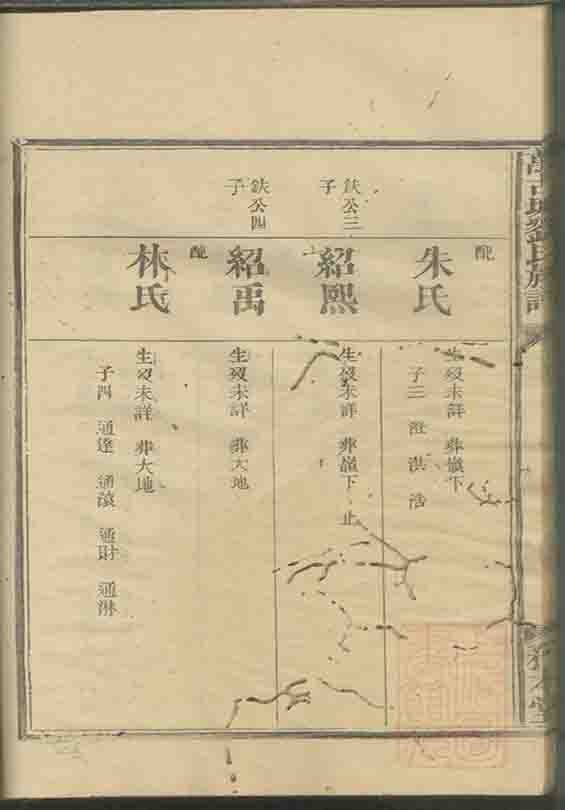 配
朱氏
生歿未詳 葬嶺下
子三 澄 淇 浩
鈇公三子
紹熙
生歿未詳 葬嶺下 止
鈇公四子
紹禹
生歿未詳 葬大地
配
林氏
生歿未詳 葬大地
子四 通達 通滾 通財 通淋
氏族譜